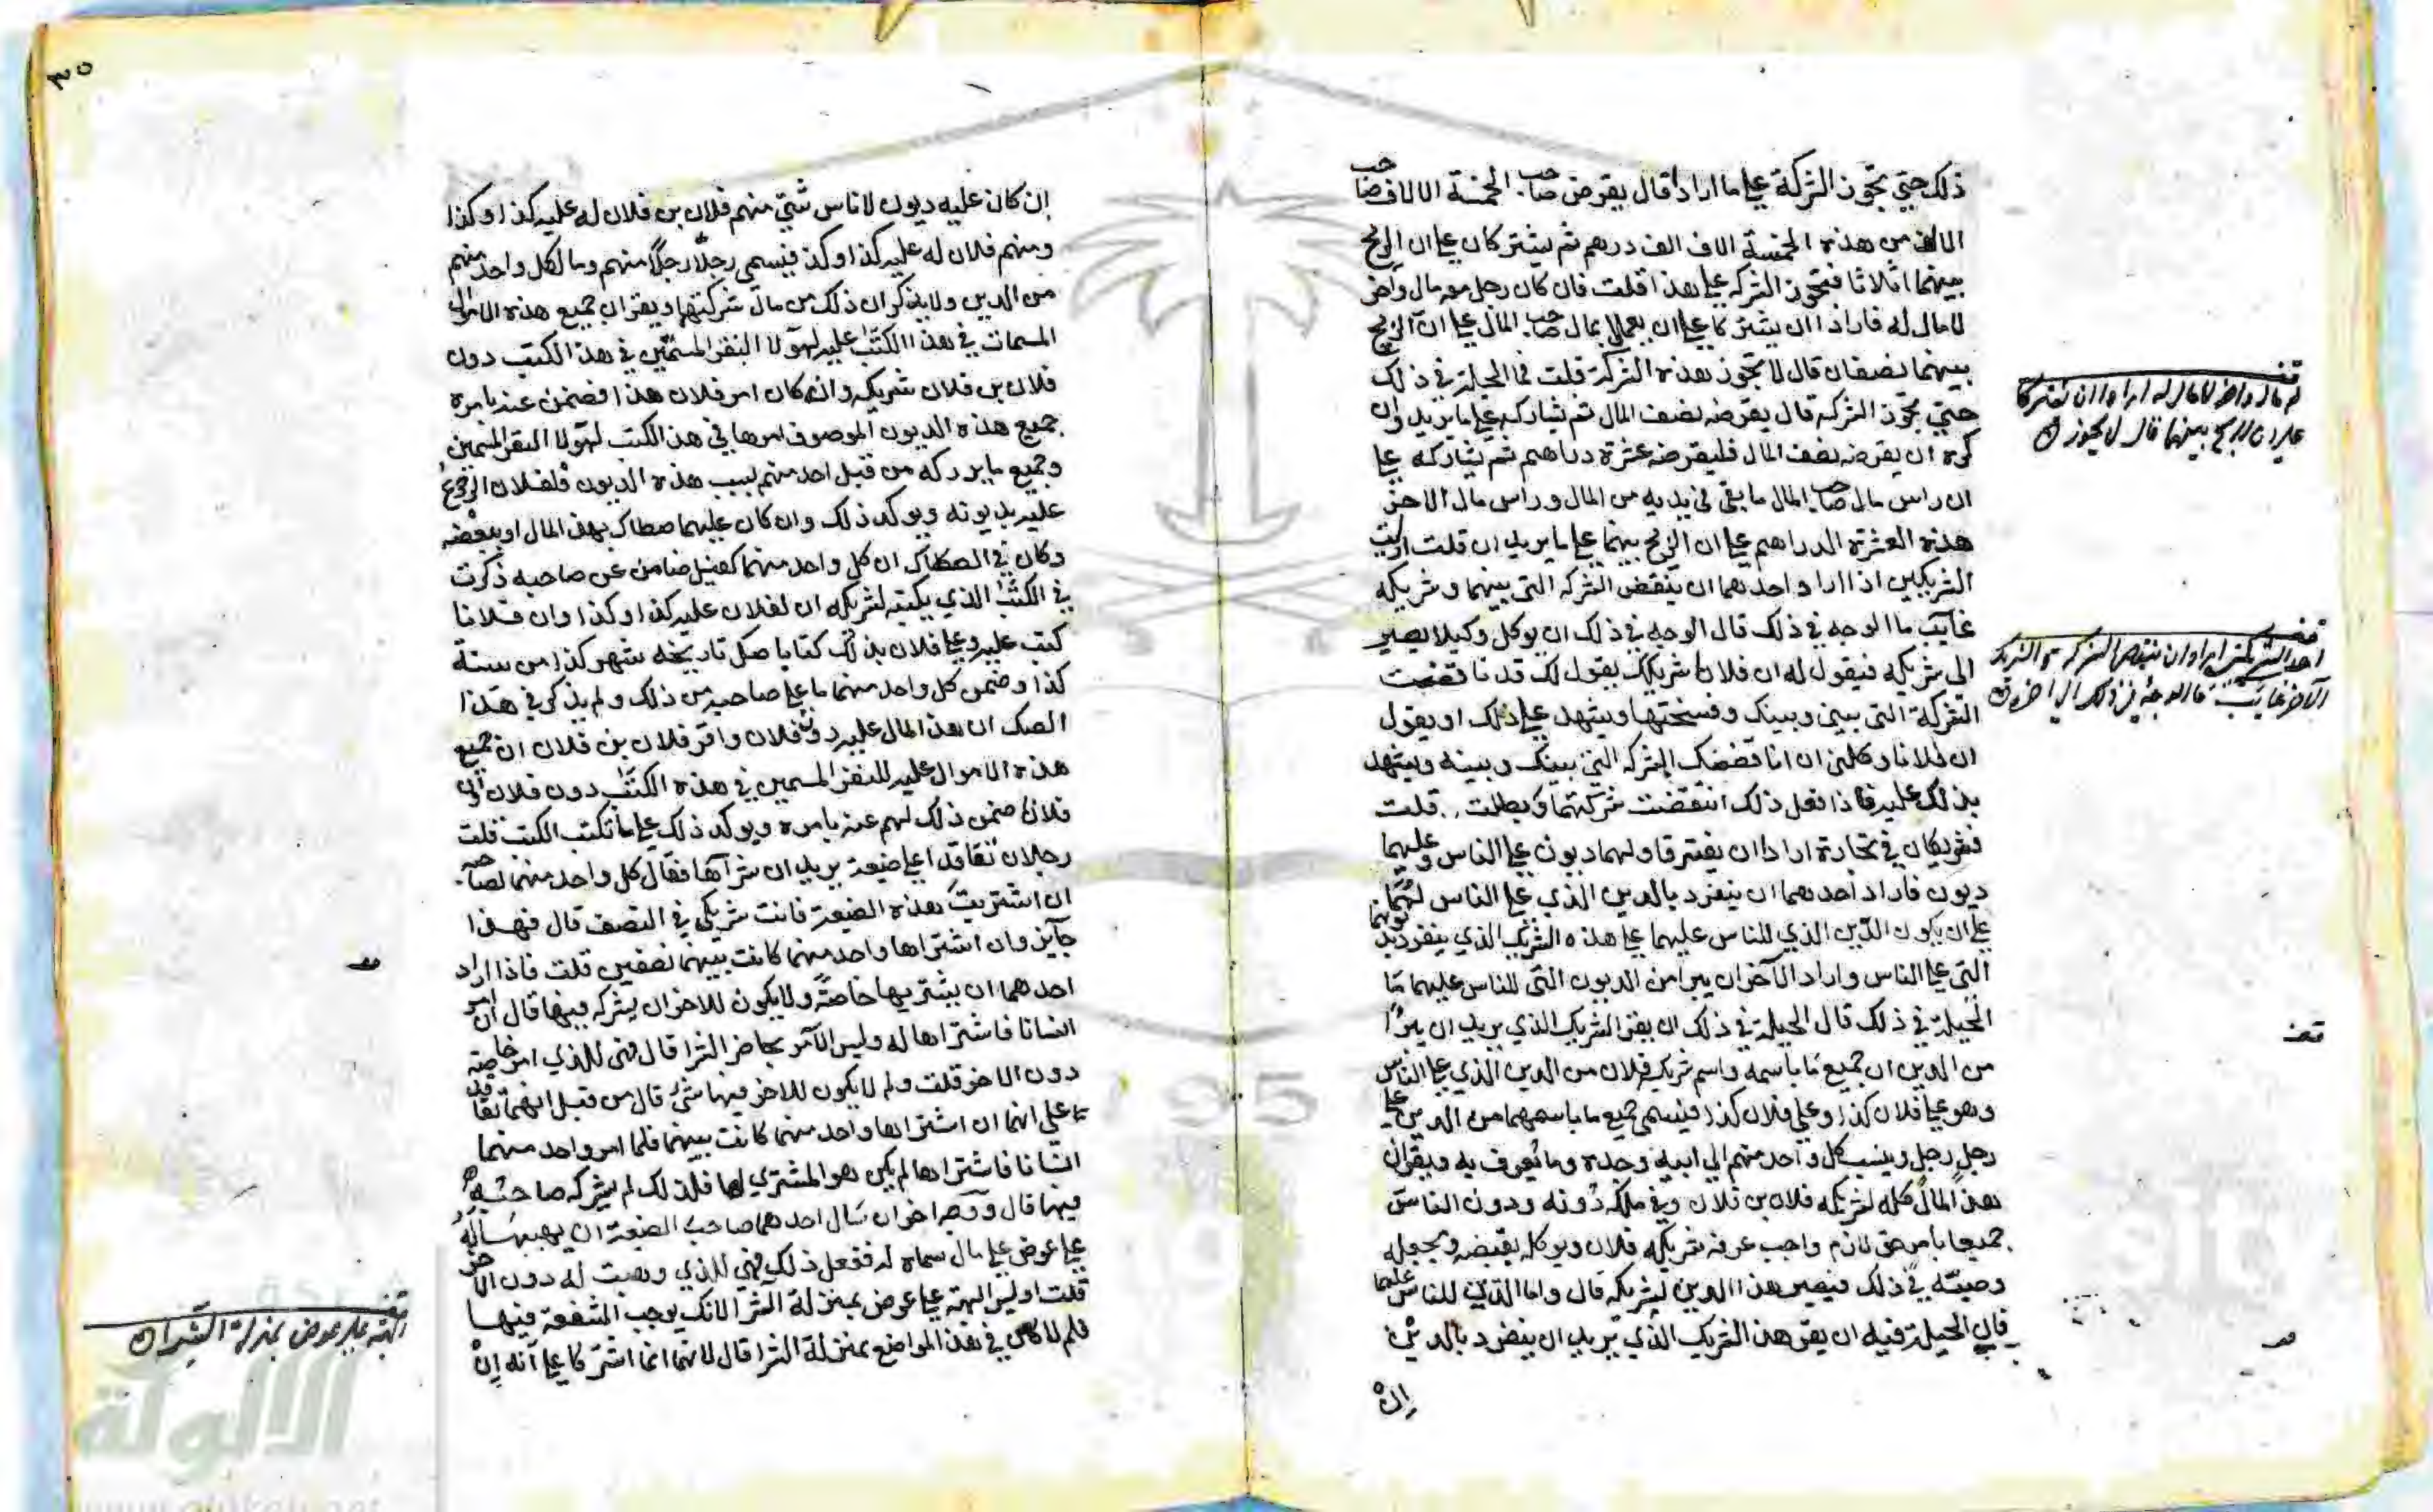 ذلك حتى تجوز الشركة على ما ارادا قال يقرض صاحب الخمسة الالاف صاحب
الالف من هذه الخمسة الاف الف درهم ثم يشتركان على ان الربح
بينهما اثلاثا فتجوز الشركه على هذا قلت فان كان رجل معه مال وآخر
لا مال له فارادا ان يشتركا على ان يعملا بمال صاحب المال على ان الربح
بينهما نصفان قال لا تجوز هذه الشركة قلت فما الحيلة في ذلك
حتى تجوز الشركه قال يقرضه نصف المال ثم يشاركه على ما يريد وان
كره ان يقرضه نصف المال فليقرضه عشرة دراهم ثم يشاركه على
ان راس مال صاحب المال ما بقي في يديه من المال وراس مال الاخر
هذه العشرة الدراهم على ان الربح بينهما على ما يريدان قلت ارايت
الشريكين اذا اراد احدهما ان ينقض الشركه التى بينهما وشريكه
غايب ما الوجه في ذلك قال الوجه في ذلك ان يوكل وكيلا يصير
الى شريكه فيقول له ان فلانا شريكك يقول لك قد ناقضت
الشركة التى بيني وبينك وفسختها ويشهد على ذلك او يقول
ان فلانا وكلني ان اناقضك الشركه التي بينك وبينه ويشهد
بذلك عليه فاذا فعل ذلك انتقضت شركتهما وبطلت قلت
فشريكان في تجارة ارادا ان يفترقا ولهما ديون على الناس وعليهما
ديون فاراد احدهما ان ينفرد بالدين الذي على الناس لهما
على ان يكون الدين الذي للناس عليهما على هذه الشريك الذي ينفرد بديونهما
التى على الناس واراد الآخر ان يبرا من الديون التى للناس عليهما ما
الحيلة في ذلك قال الحيلة في ذلك ان يقر الشريك الذي يريد ان يبرأ
من الدين ان جميع ما باسمه واسم شريكه فلان من الدين الذي على الناس
وهو على فلان كذا وعلى فلان كذا فيسمى جميع ما باسمهما من الدين على
رجل رجل وينسب كل واحد منهم الى ابيه وجده وما يعرف به ويقر ان
هذا المال كله لشريكه فلان بن فلان وفي ملكه دونه ودون الناس
جميعا بامر حق لازم واجب عرفه لشريكه فلان ويوكله بقبضه ويجعله
وصيته في ذلك فيصير هذا الدين لشريكه قال واما الدين للناس عليهما
قال الحيلة فيه ان يقر هذا الشريك الذي يريد ان ينفرد بالدين
ان
له مال واخر لا مال له ارادا ان يشتركا
على ان الربح بينهما قال لا يجوز
احد الشريكين اراد ان ينقض الشركة والشريك
الاخر غايب ما الوجه في ذلك الى اخره
٣٥
ان كان عليه ديون لاناس شتى منهم فلان بن فلان له عليه كذا وكذا
ومنهم فلان له عليه كذا وكذا فيسمى رجلا رجلا منهم وما لكل واحد منهم
من الدين ولا يذكر ان ذلك من مال شركتهما ويقر ان جميع هذه الاموال
المسمات في هذا الكتاب عليه لهولا النفر المسمين في هذا الكتب دون
فلان بن فلان شريكه وان كان امر فلان هذا فضمن عنه بامره
جميع هذه الديون الموصوف امرها في هذا الكتب لهولا النفر المسمين
وجميع ما يدركه من قبل احد منهم بسبب هذه الديون فلفلان الرجوع
عليه بديونه ويوكد ذلك وان كان عليهما صكاك بهذا المال او ببعضه
وكان في الصكاك ان كل واحد منهما كفيل ضامن عن صاحبه ذكرت
في الكتب الذي يكتبه لشريكه ان لفلان عليه كذا وكذا وان فلانا
كتب عليه وعلى فلان بذلك كتابا صك تاريخه شهر كذا من سنة
كذا وضمن كل واحد منهما ما على صاحبه من ذلك ولم يذكر في هذا
الصك ان هذا المال عليه دون فلان واقر فلان بن فلان ان جميع
هذه الاموال عليه للنفر المسمين في هذه الكتب دون فلان وان
فلانا ضمن ذلك لهم عنه بامره ويوكد ذلك على ما تكتب الكتب قلت
رجلان تقاقدا على ضيعة يريدان شرآها فقال كل واحد منهما لصاحبه
ان اشتريت هذه الضيعة فانت شريكي في النصف قال فهذا
جايز وان اشتراها واحد منهما كانت بينهما نصفين قلت فاذا اراد
احدهما ان يشتريها خاصة ولا يكون للاخر ان يشركه فيها قال ان امر
انسانا فاشتراها له وليس الآمر بحاضر الشرا قال فهى للذي امر خاصة
دون الاخر قلت ولم لا يكون للاخر فيها شئ قال من قبل انهما تعاقد
تا على انهما ان اشتراها واحد منهما كانت بينهما فلما امر واحد منهما
انسانا فاشتراها لم يكن هو المشتري لها فلذلك لم يشركه صاحبه
فيها قال ووجه اخر ان سال احدهما صاحب الضيعة ان يهبها له
على عوض على مال سماه له ففعل ذلك فهي للذي وهبت له دون الاخر
قلت اوليس الهبة على عوض بمنزلة الشرا لانك يوجب الشفعة فيها
فلم لا كان في هذا المواضع بمنزلة الشرا قال لانهما انما اشتركا على انه ان
الهبة على عوض بمنزلة الشرا
الالوكة